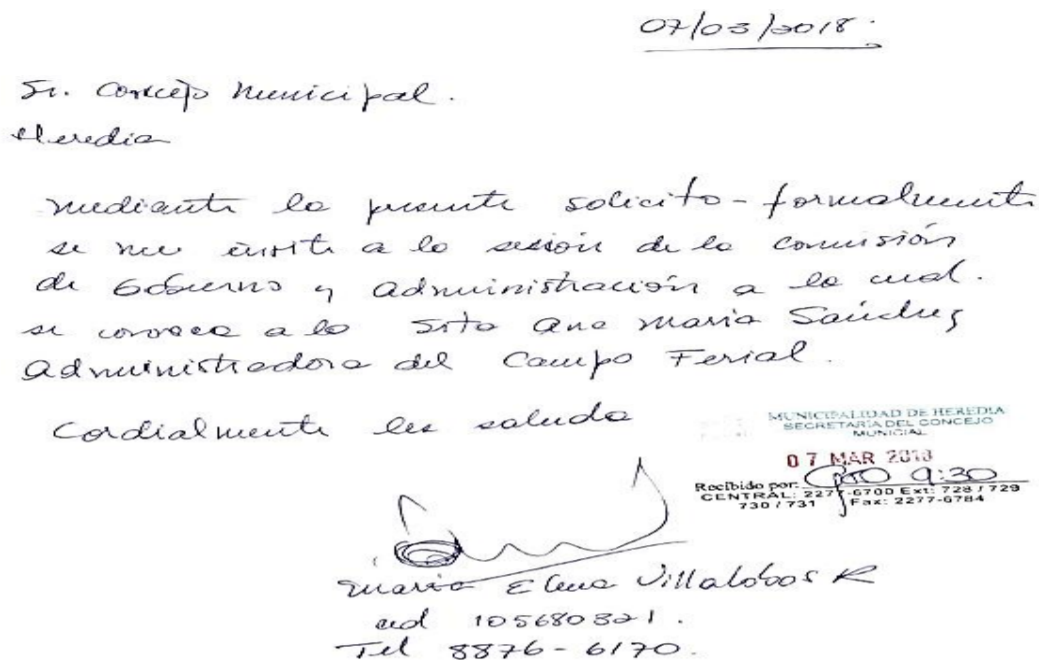 07/03/2018.
Sr. Concejo Municipal.
Heredia
Mediante la presente solicito - formalmente
se me invite a la sesión de la comisión
de Gobierno y Administración a la cual.
se convoca a la Srta Ana Maria Sánchez
Administradora del Campo Ferial.
Cordialmente les saluda
MUNICIPALIDAD DE HEREDIA
SECRETARIA DEL CONCEJO
MUNICIAL
07 MAR 2018
Recibido por: 9:30
CENTRAL: 2277-6700 Ext: 728 / 729
730 / 731 Fax: 2277-6784
Maria Elena Villalobos R
ced 105680321.
Tel 8876-6170.